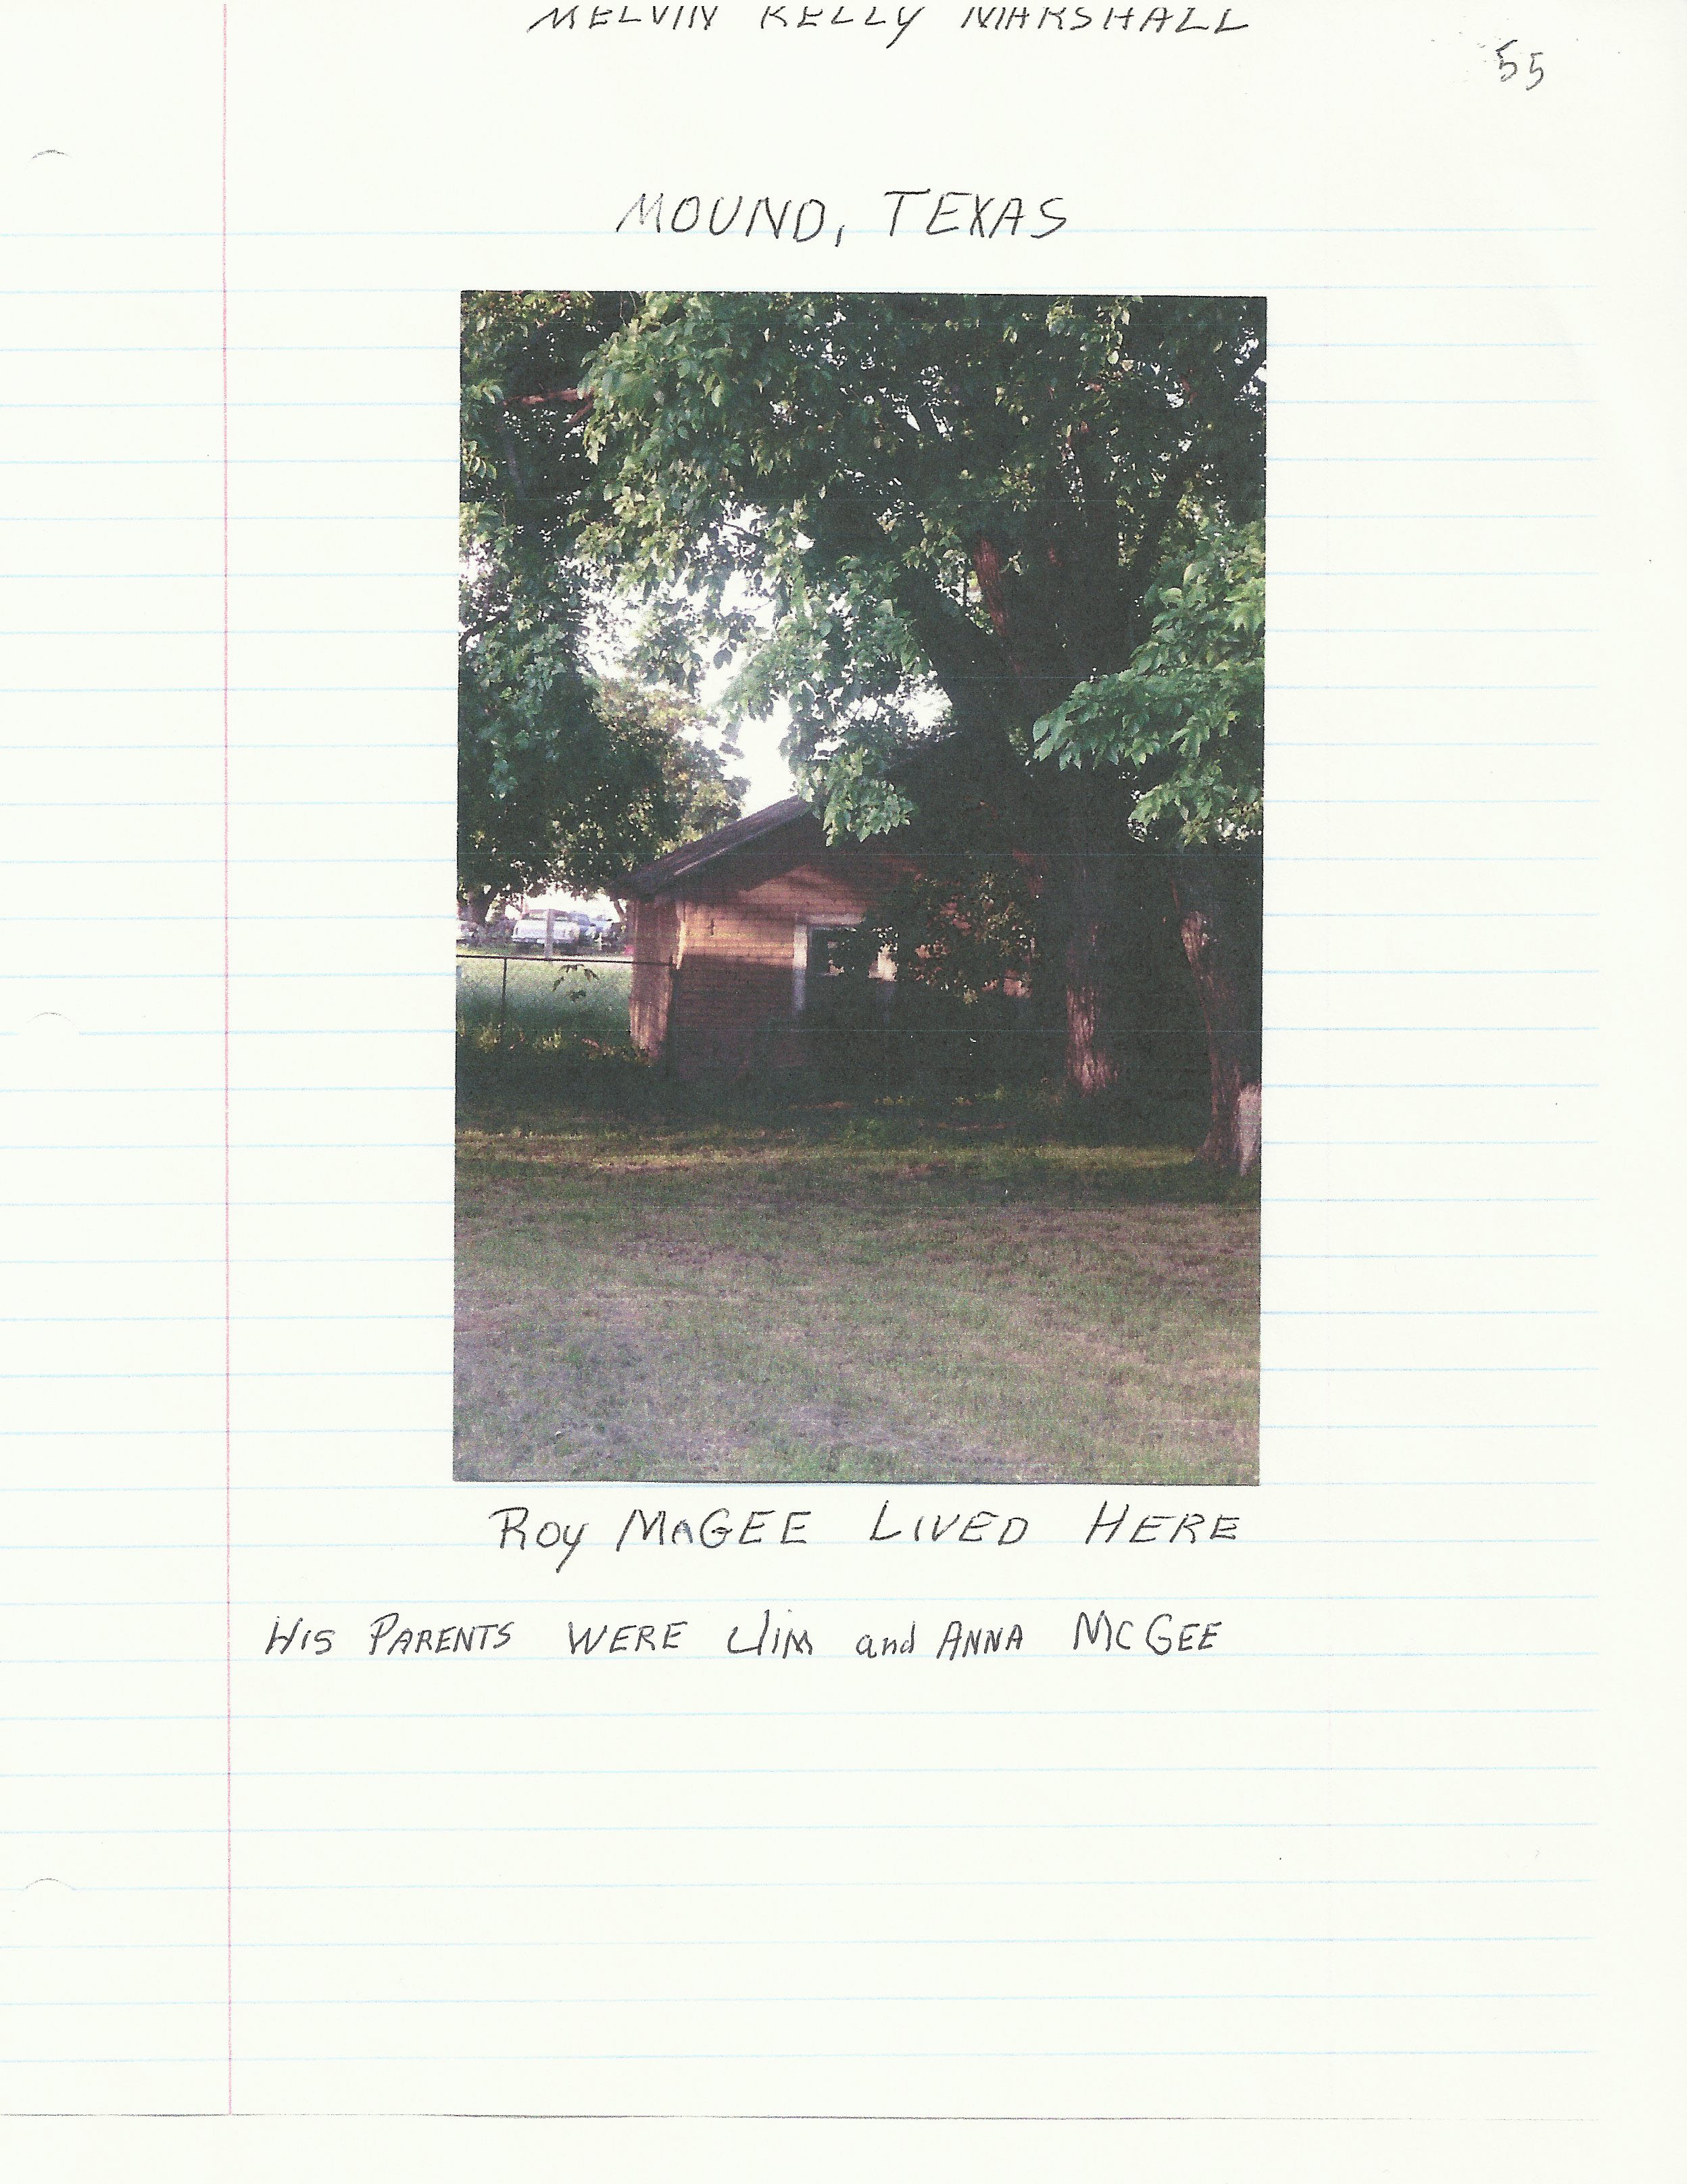 MELVIN KELLY MARSHALL
55
MOUND, TEXAS
ROY McGEE LIVED HERE
HIS PARENTS WERE JIM and ANNA MCGEE